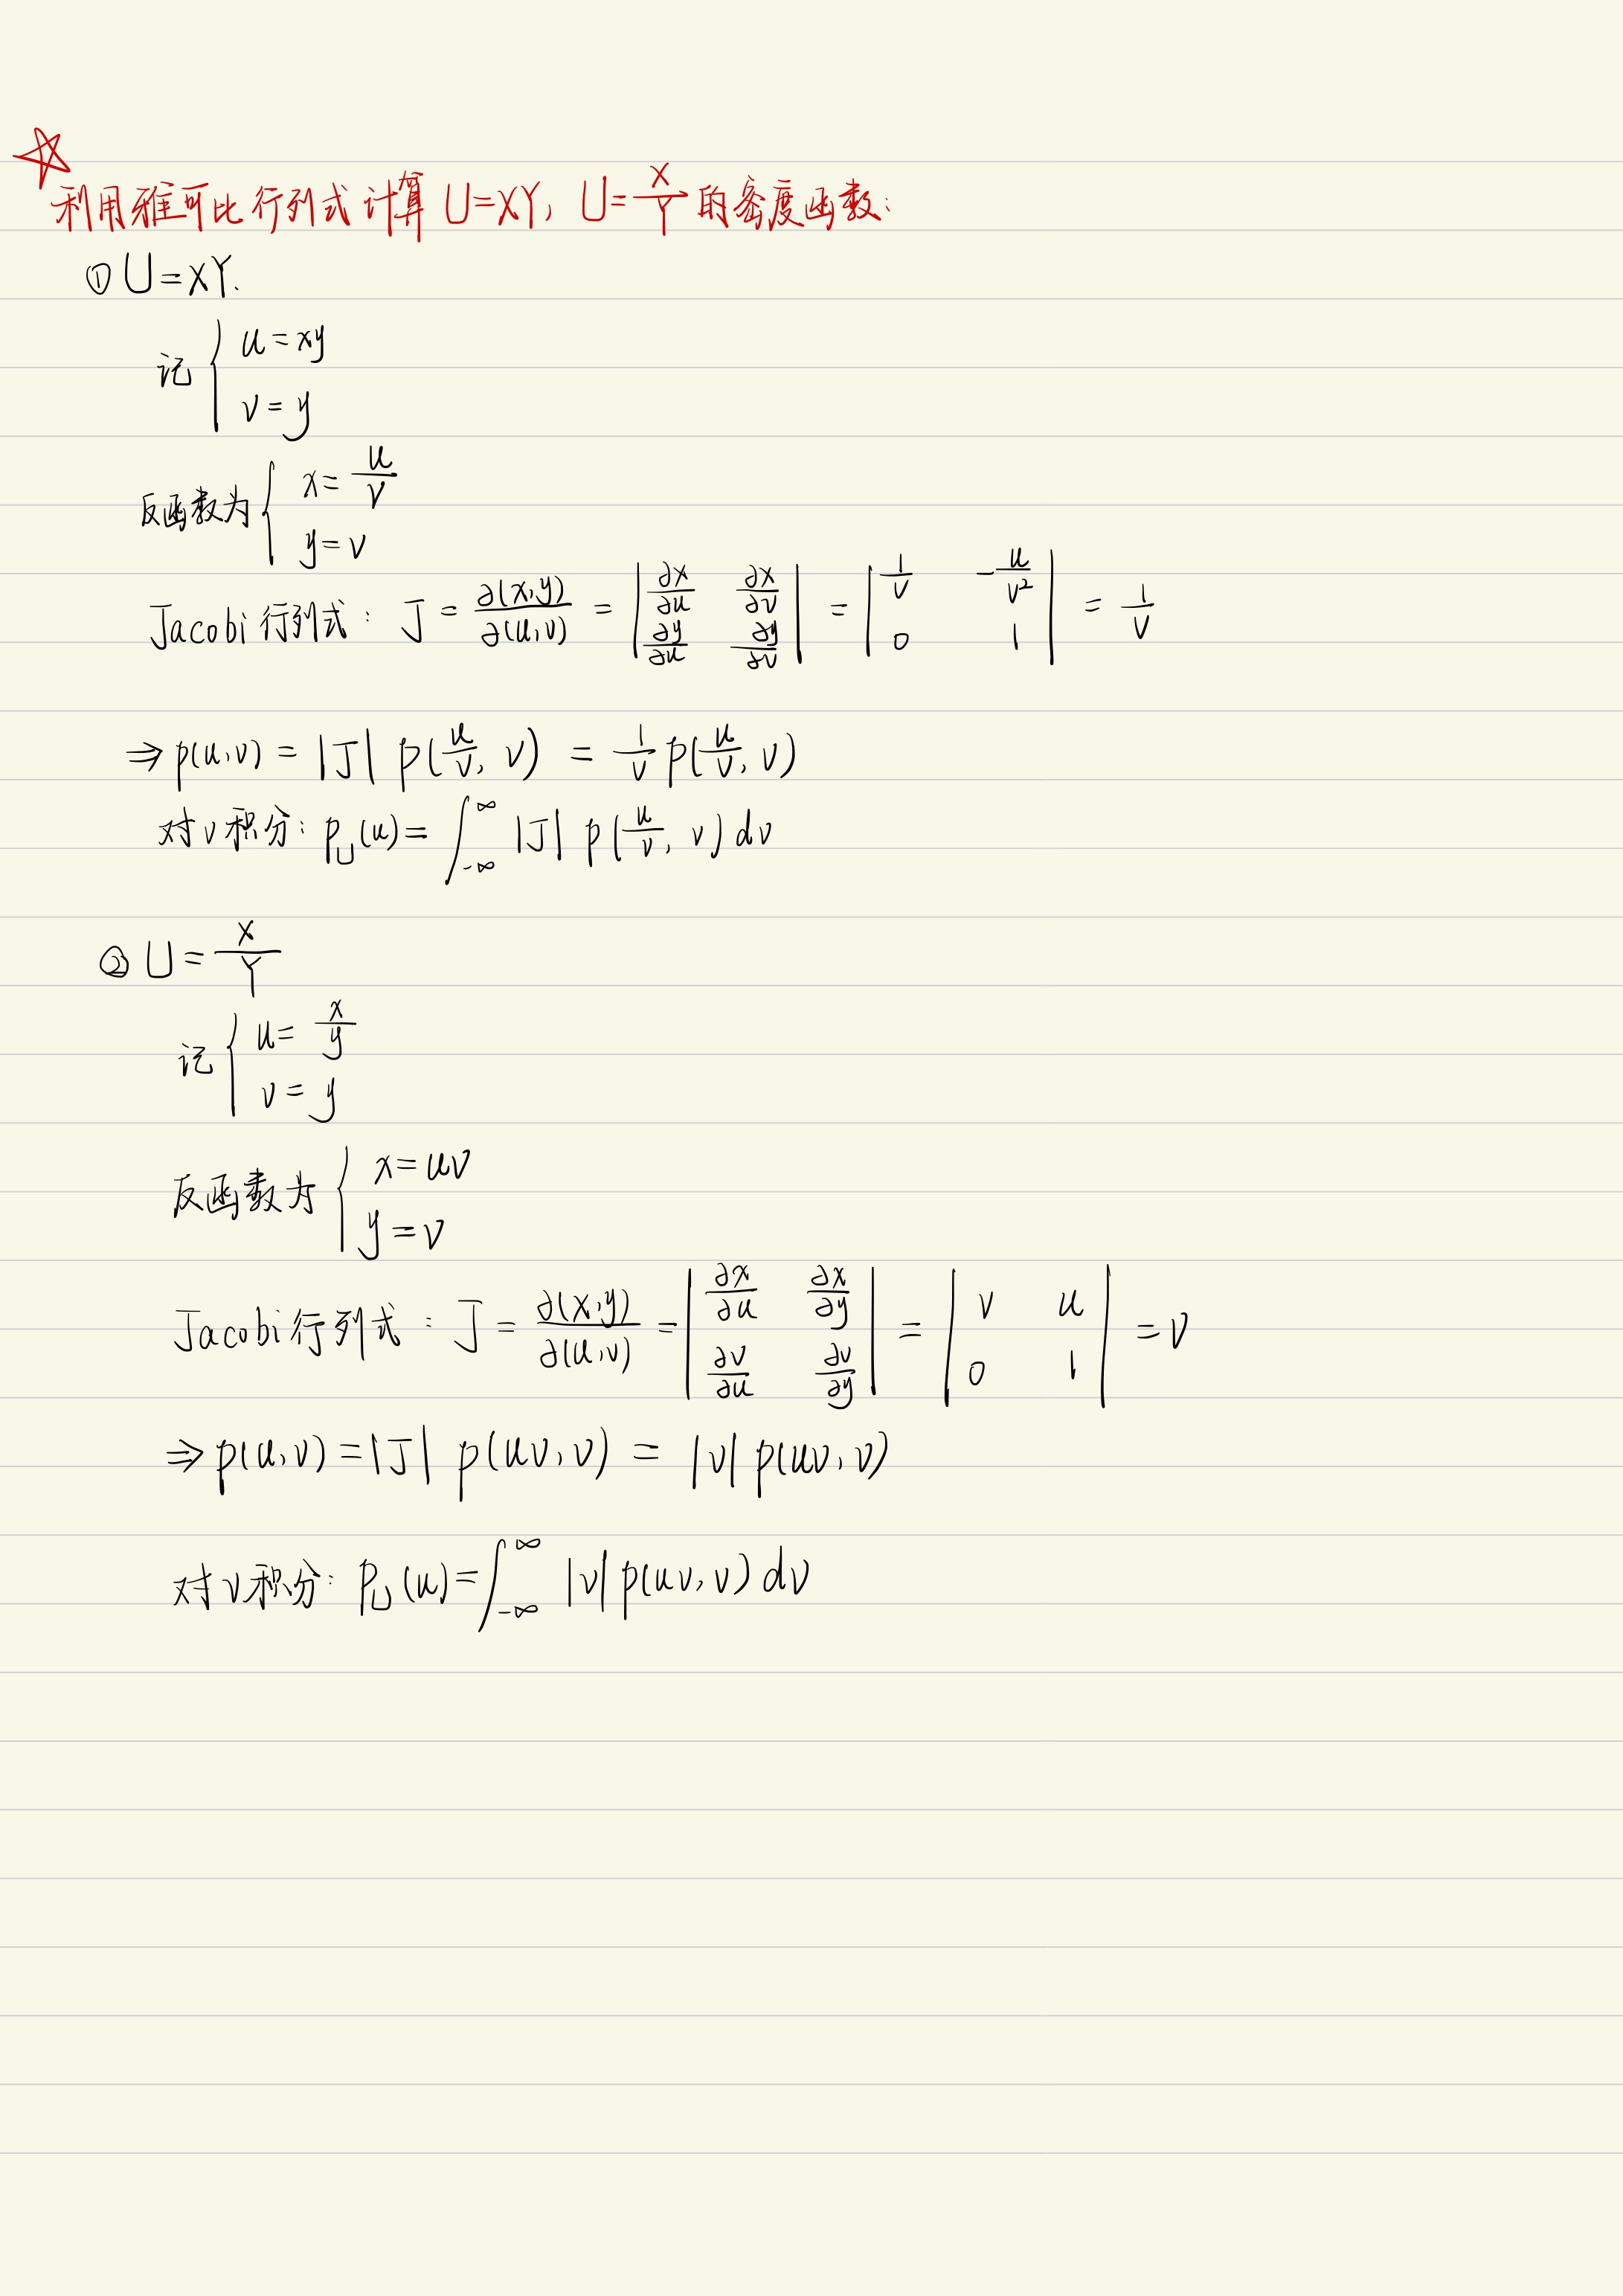 利用雅可比行列式计算 U=XY, U=X/Y 的密度函数:
① U=XY.
记 { u=xy
v=y
反函数为 { x=u/v
y=v
Jacobi 行列式: J = ∂(x,y)/∂(u,v) = | ∂x/∂u ∂x/∂v ; ∂y/∂u ∂y/∂v | = | 1/v -u/v² ; 0 1 | = 1/v
⇒ p(u,v) = |J| p(u/v, v) = 1/v p(u/v, v)
对 v 积分: p_U(u) = ∫_{-∞}^{∞} |J| p(u/v, v) dv
② U = X/Y
记 { u = x/y
v = y
反函数为 { x=uv
y=v
Jacobi 行列式: J = ∂(x,y)/∂(u,v) = | ∂x/∂u ∂x/∂y ; ∂v/∂u ∂v/∂y | = | v u ; 0 1 | = v
⇒ p(u,v) = |J| p(uv, v) = |v| p(uv, v)
对 v 积分: p_U(u) = ∫_{-∞}^{∞} |v| p(uv, v) dv